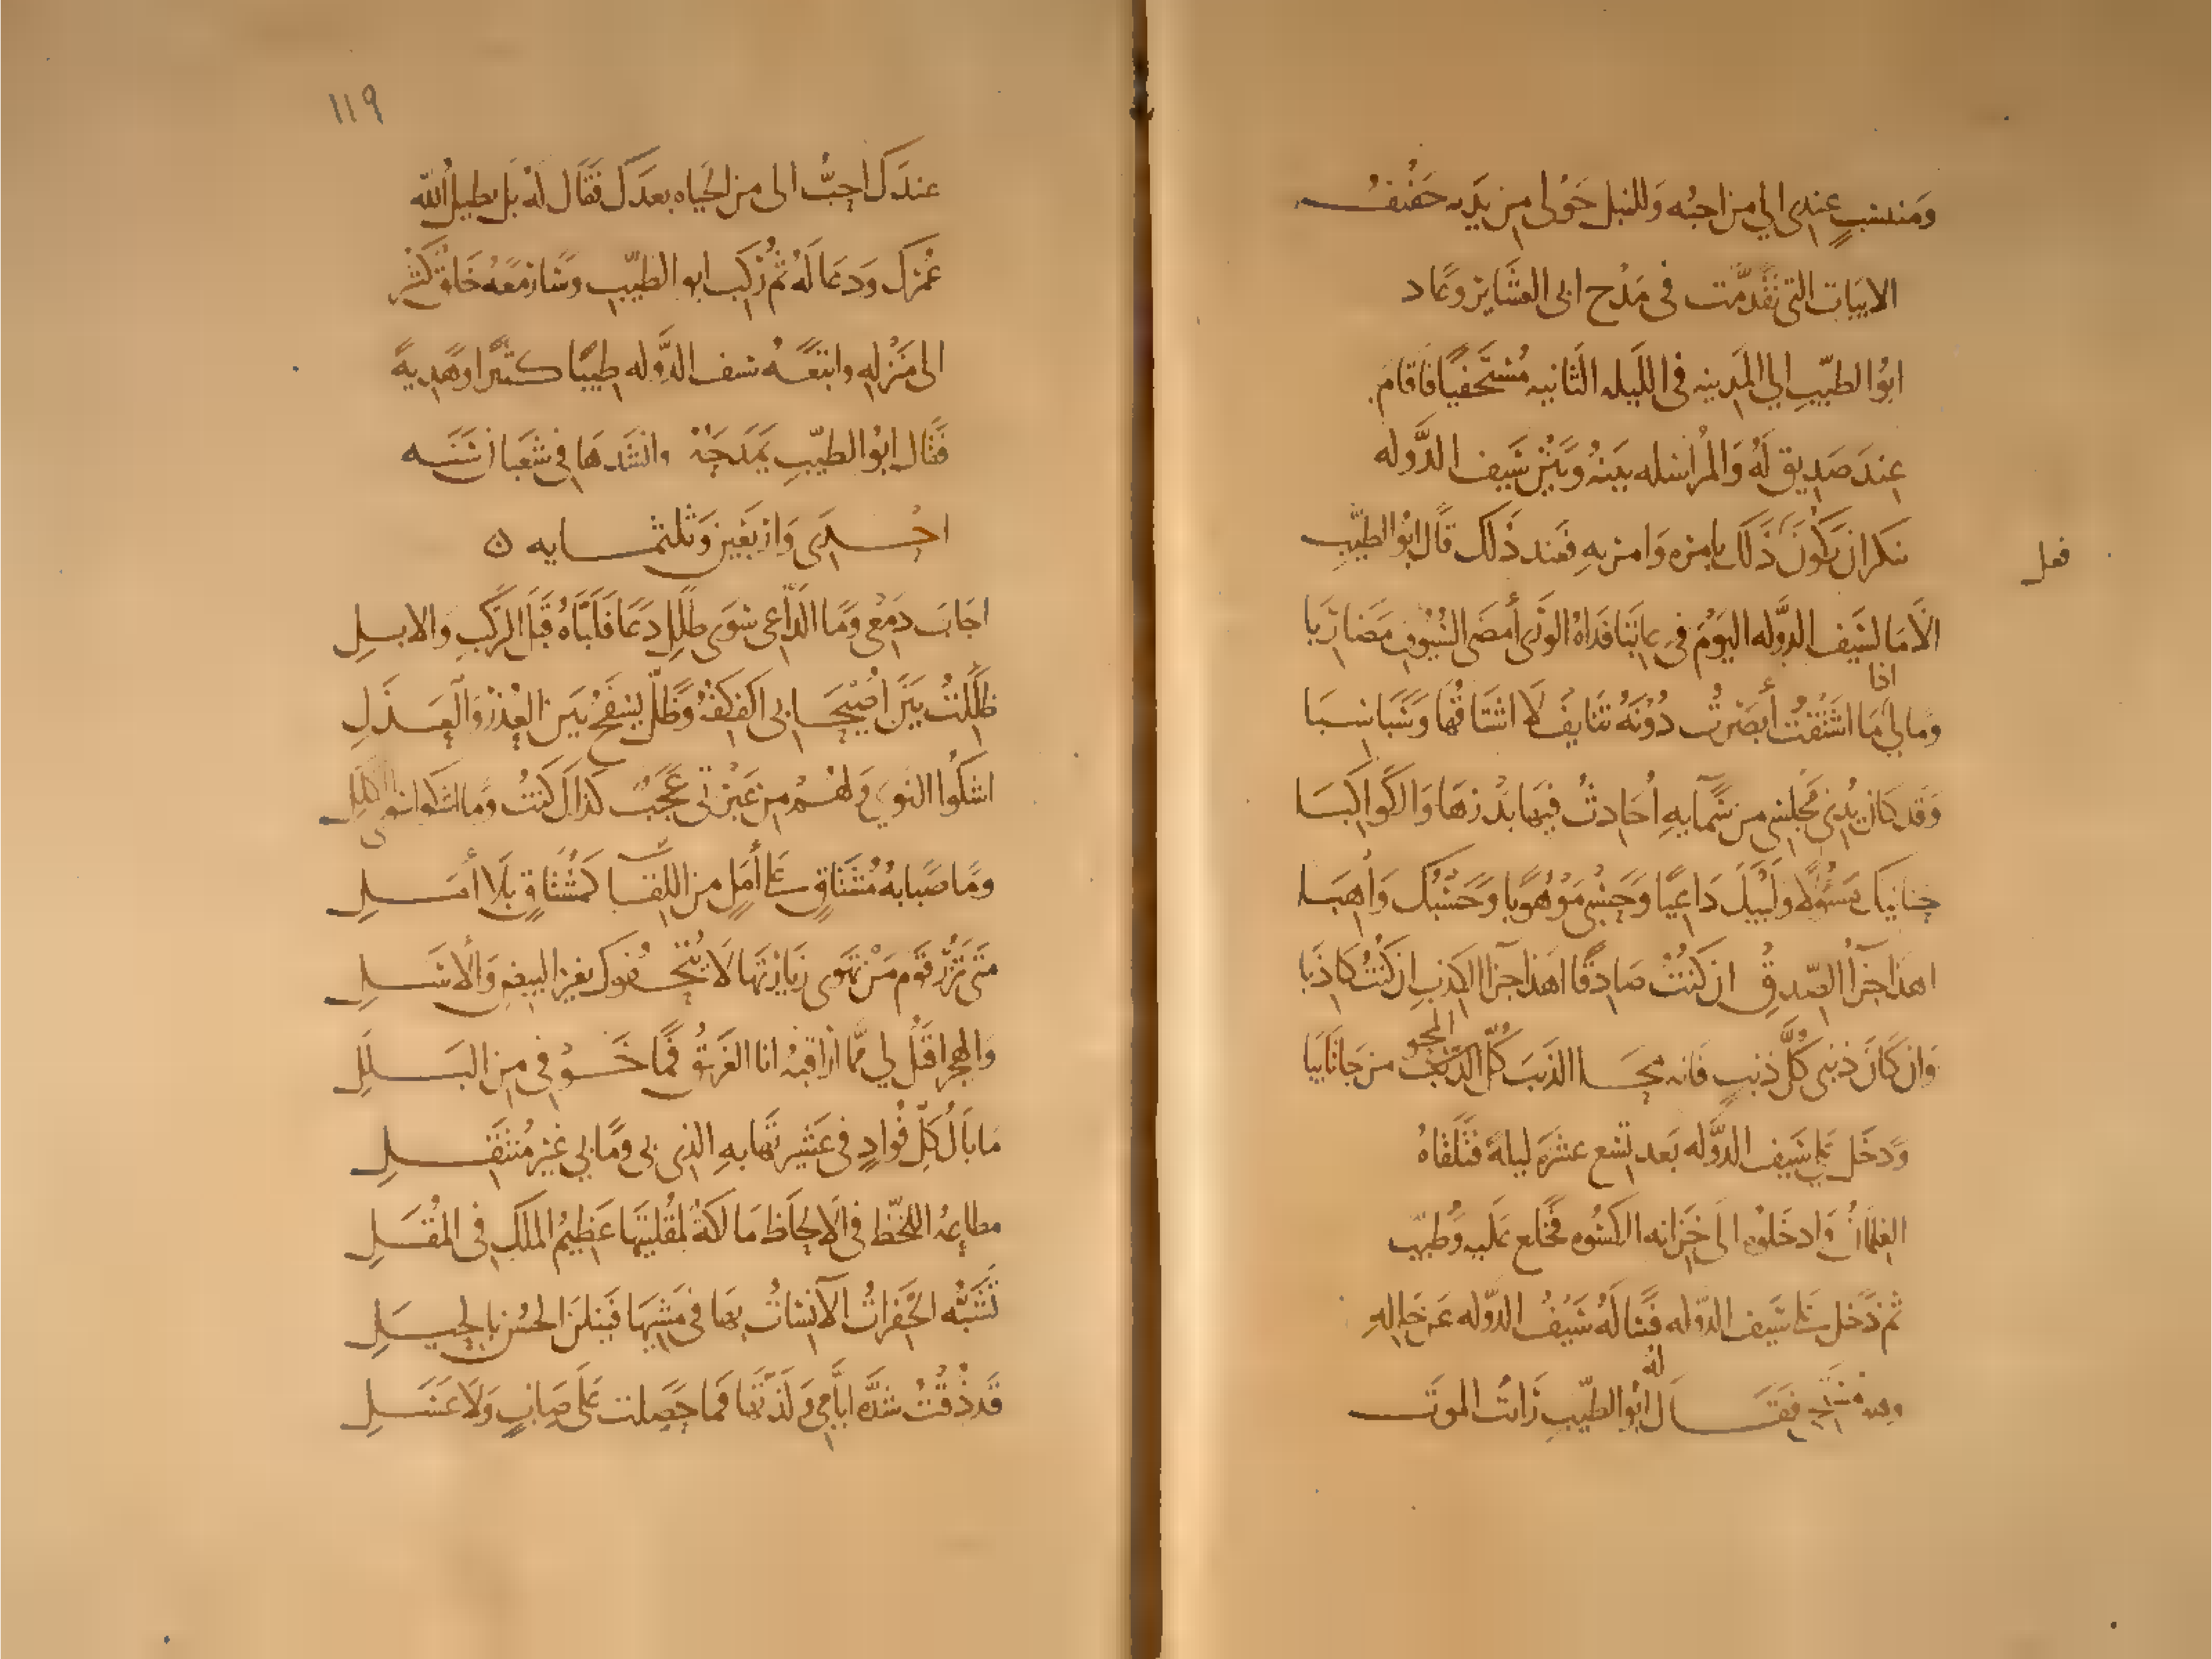 ومنتسب عندى الي من احبه وللنبل حولى من يديه حفيف
الابيات التى تقدمت فى مدح ابى العشاير وعاد
ابو الطيب الي المدينه فى الليله الثانيه مستخفيا فاقام
عند صديق له والمراسله بينه وبين سيف الدوله
ينكر ان يكون ذلك بامره وامر به فعند ذلك قال ابو الطيب
فعل
الا ما لسيف الدوله اليوم فى عاتبا فداه الورى أمضى السيوف مضاربا
ومالي اذا ما اشتقت أبصرت دونه تنايف لا اشتاقها وسباسبا
وقد كان يدنى مجلسى من سمايه احادث فيها بدرها والكواكبا
حنانيك مسؤلا ولبيك داعيا وحسبى موهوبا وحسبك واهبا
اهذا جزآ الصدق ان كنت صادقا اهذا جزا الكذب ان كنت كاذبا
وان كان ذنبى كل ذنب فانه محا الذنب كل المحو من جا تايبا
ودخل على سيف الدوله بعد تسع عشره ليلة فتلقاه
الغلمان وادخلوه الى خزانه الكسوه فخلع عليه وطيب
ثم دخل على سيف الدوله فسا له سيف الدوله عن حاله
وهو فقال له ابو الطيب رايت الموت
١١٩
عندك احب الى من الحياه بعدك فقال له بل يطيل الله
عمرك ودعا له ثم ركب ابو الطيب وسار معه خلق كثير
الى منزله واتبعه سيف الدوله طيبا كثيرا وهدية
فقال ابو الطيب يمدحه وانشدها فى شعبان سنه
احدى واربعين وثلثمايه ن
اجاب دمعى وما الداعى سوى طلل دعا فلباه قبل الركب والابل
ظللت بين اصيحابى اكفكفه وظل يسفح بين العذر والعذل
اشكوا النوى ولهم من عبرتى عجب كذاك كنت وما اشكوا سوى الكلل
وما صبابة مشتاق على أمل من اللقا كمشتاق بلا أمل
متى تزر قوم من تهوى زيارتها لا يتحفوك بغير البيض والاسل
والهجر اقتل لي مما اراقبه انا الغريق فما خوفى من البلل
ما بال كل فواد فى عشيرتها به الذى بى وما بي غير منتقل
مطاعة اللحظ فى الالحاظ مالكة لمقلتيها عظيم الملك فى المقل
تشبه الخفرات الآنسات بها فى مشيها فينلن الحسن بالحيل
قد ذقت شدة ايامى ولذتها فما حصلت على صاب ولا عسل